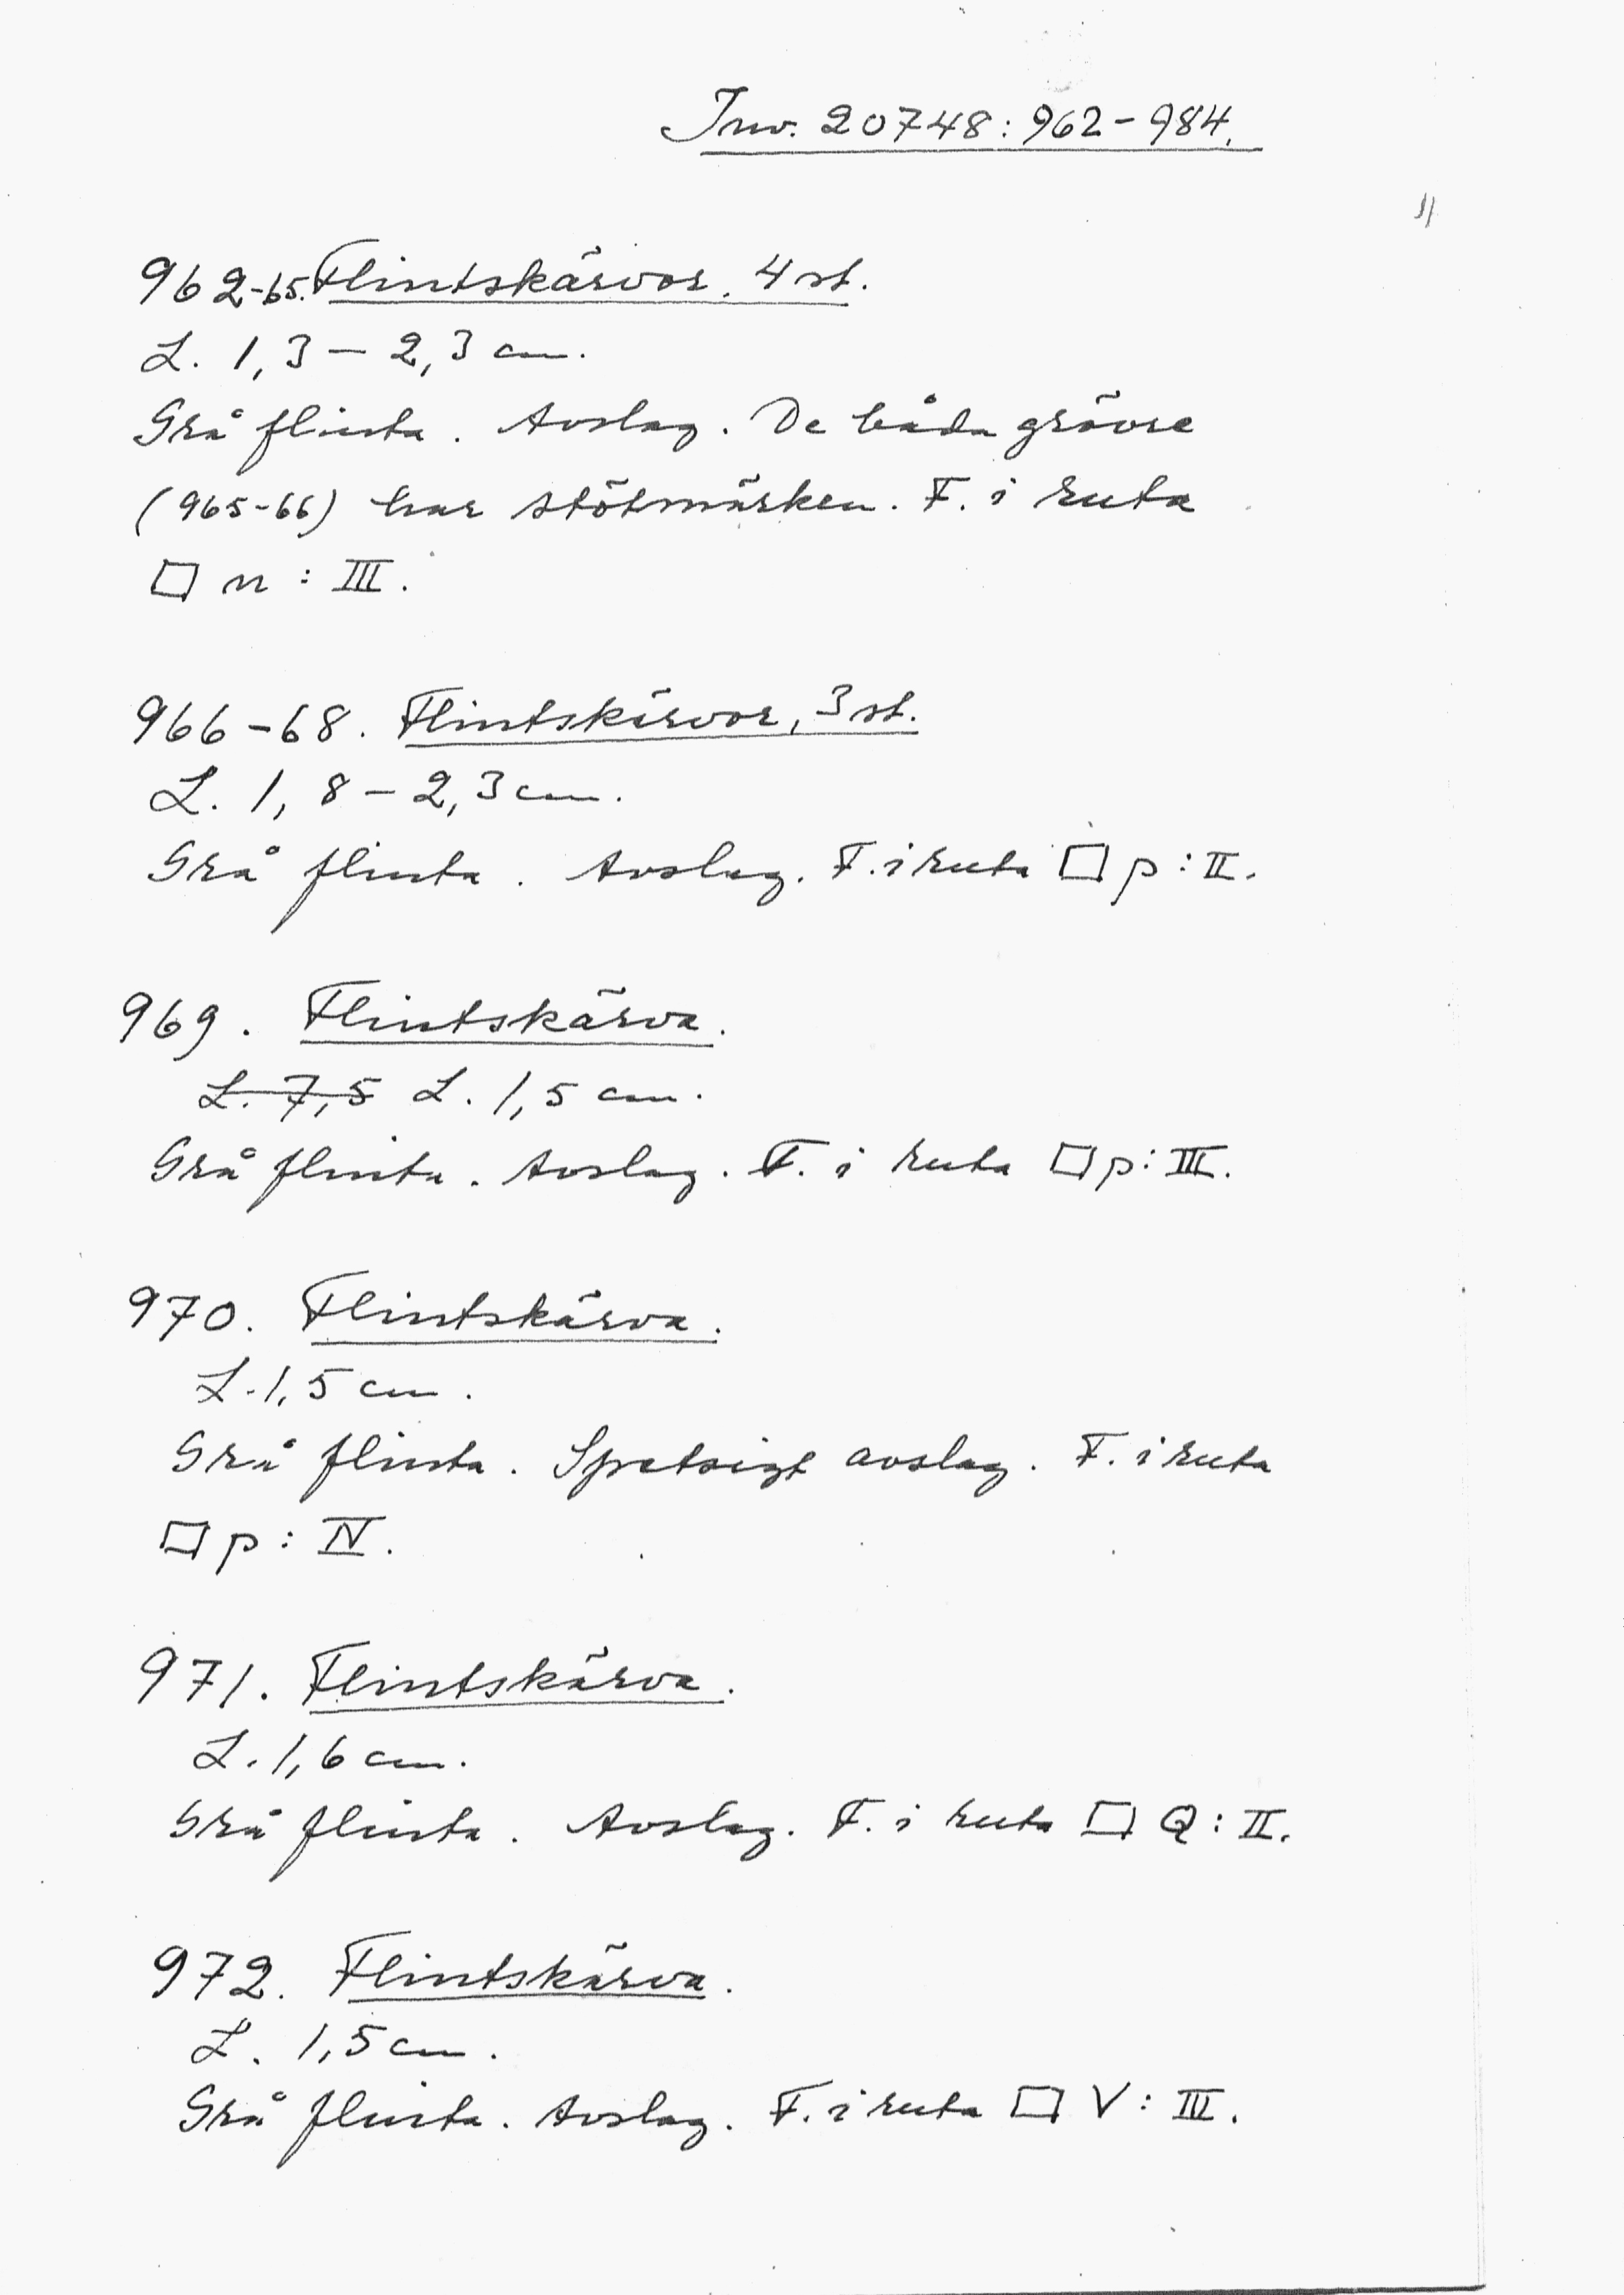 Inv. 20748:962-984.
962-65. Flintskärvor. 4 st.
L. 1,3 - 2,3 cm.
Grå flinta. Avslag. De båda grövre
(965-66) har stötmärken. F. i ruta
□ n : III.
966-68. Flintskärvor, 3 st.
L. 1,8 - 2,3 cm.
Grå flinta. Avslag. F. i ruta □ p : II.
969. Flintskärva.
L. 7,5 L. 1,5 cm.
Grå flinta. Avslag. F. i ruta □ p : III.
970. Flintskärva.
L. 1,5 cm.
Grå flinta. Spetsigt avslag. F. i ruta
□ p : IV.
971. Flintskärva.
L. 1,6 cm.
Grå flinta. Avslag. F. i ruta □ Q : II.
972. Flintskärva.
L. 1,5 cm.
Grå flinta. Avslag. F. i ruta □ V : III.